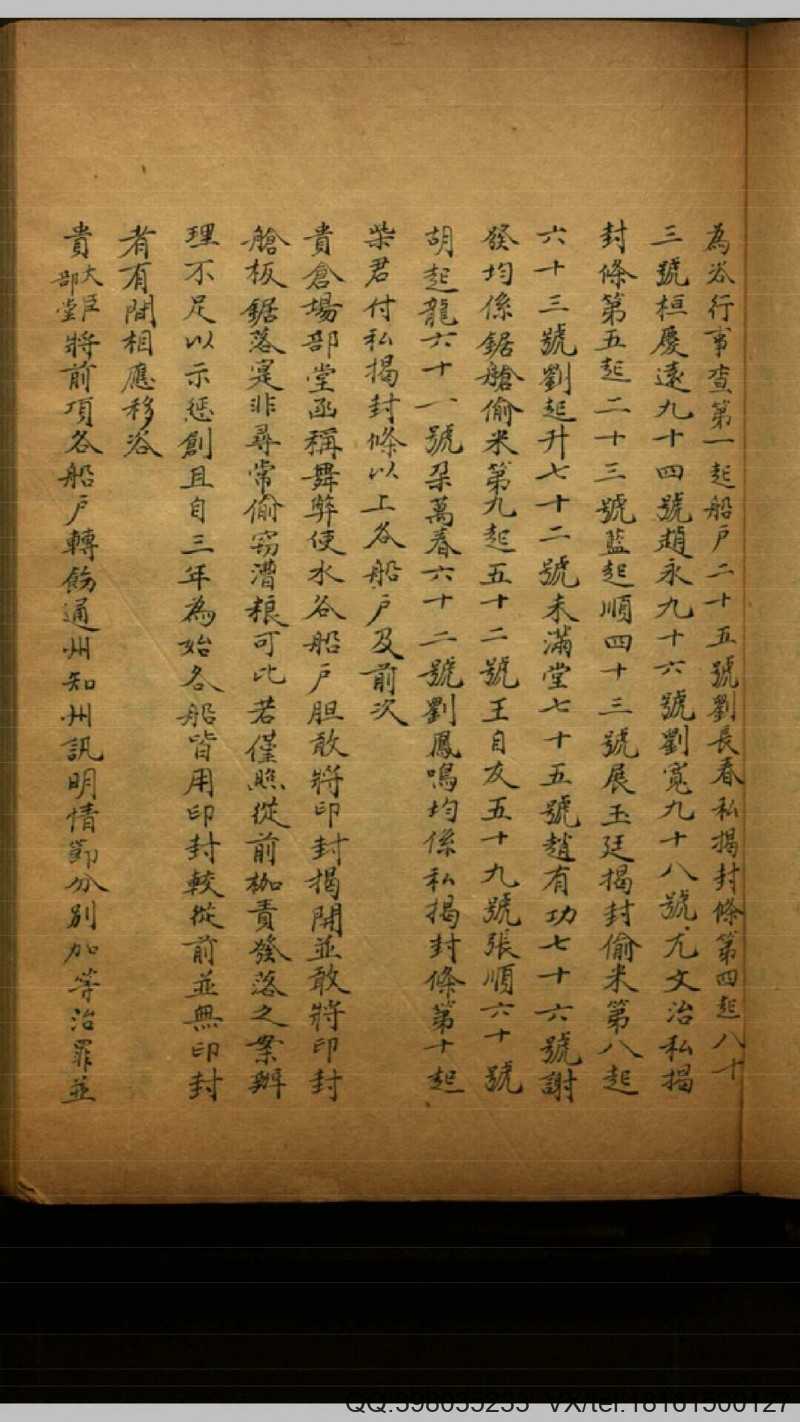 為咨行事查第一起船戶二十五號劉長春私揭封條第四起八十
三號桓慶遠九十四號趙永九十六號劉寬九十八號尤文治私揭
封條第五起二十三號藍起順四十三號展玉廷揭封偷米第八起
六十三號劉起升七十二號未滿堂七十五號趙有功七十六號謝
發均係鋸艙偷米第九起五十二號王自友五十九號張順六十號
胡起龍六十一號朶萬春六十二號劉鳳鳴均係私揭封條第十起
柴君付私揭封條以上各船戶及前次
貴倉場部堂函稱舞弊使水各船戶胆敢將印封揭開並敢將印封
艙板鋸落寔非尋常偷竊漕粮可比若僅照從前枷責發落之案辦
理不足以示惩創且自三年為始各船皆用印封較從前並無印封
者有間相應移咨
貴大臣部堂將前項各船戶轉飭通州知州訊明情節分別加等治罪並
QQ:598655255 VX/tel:18161500127